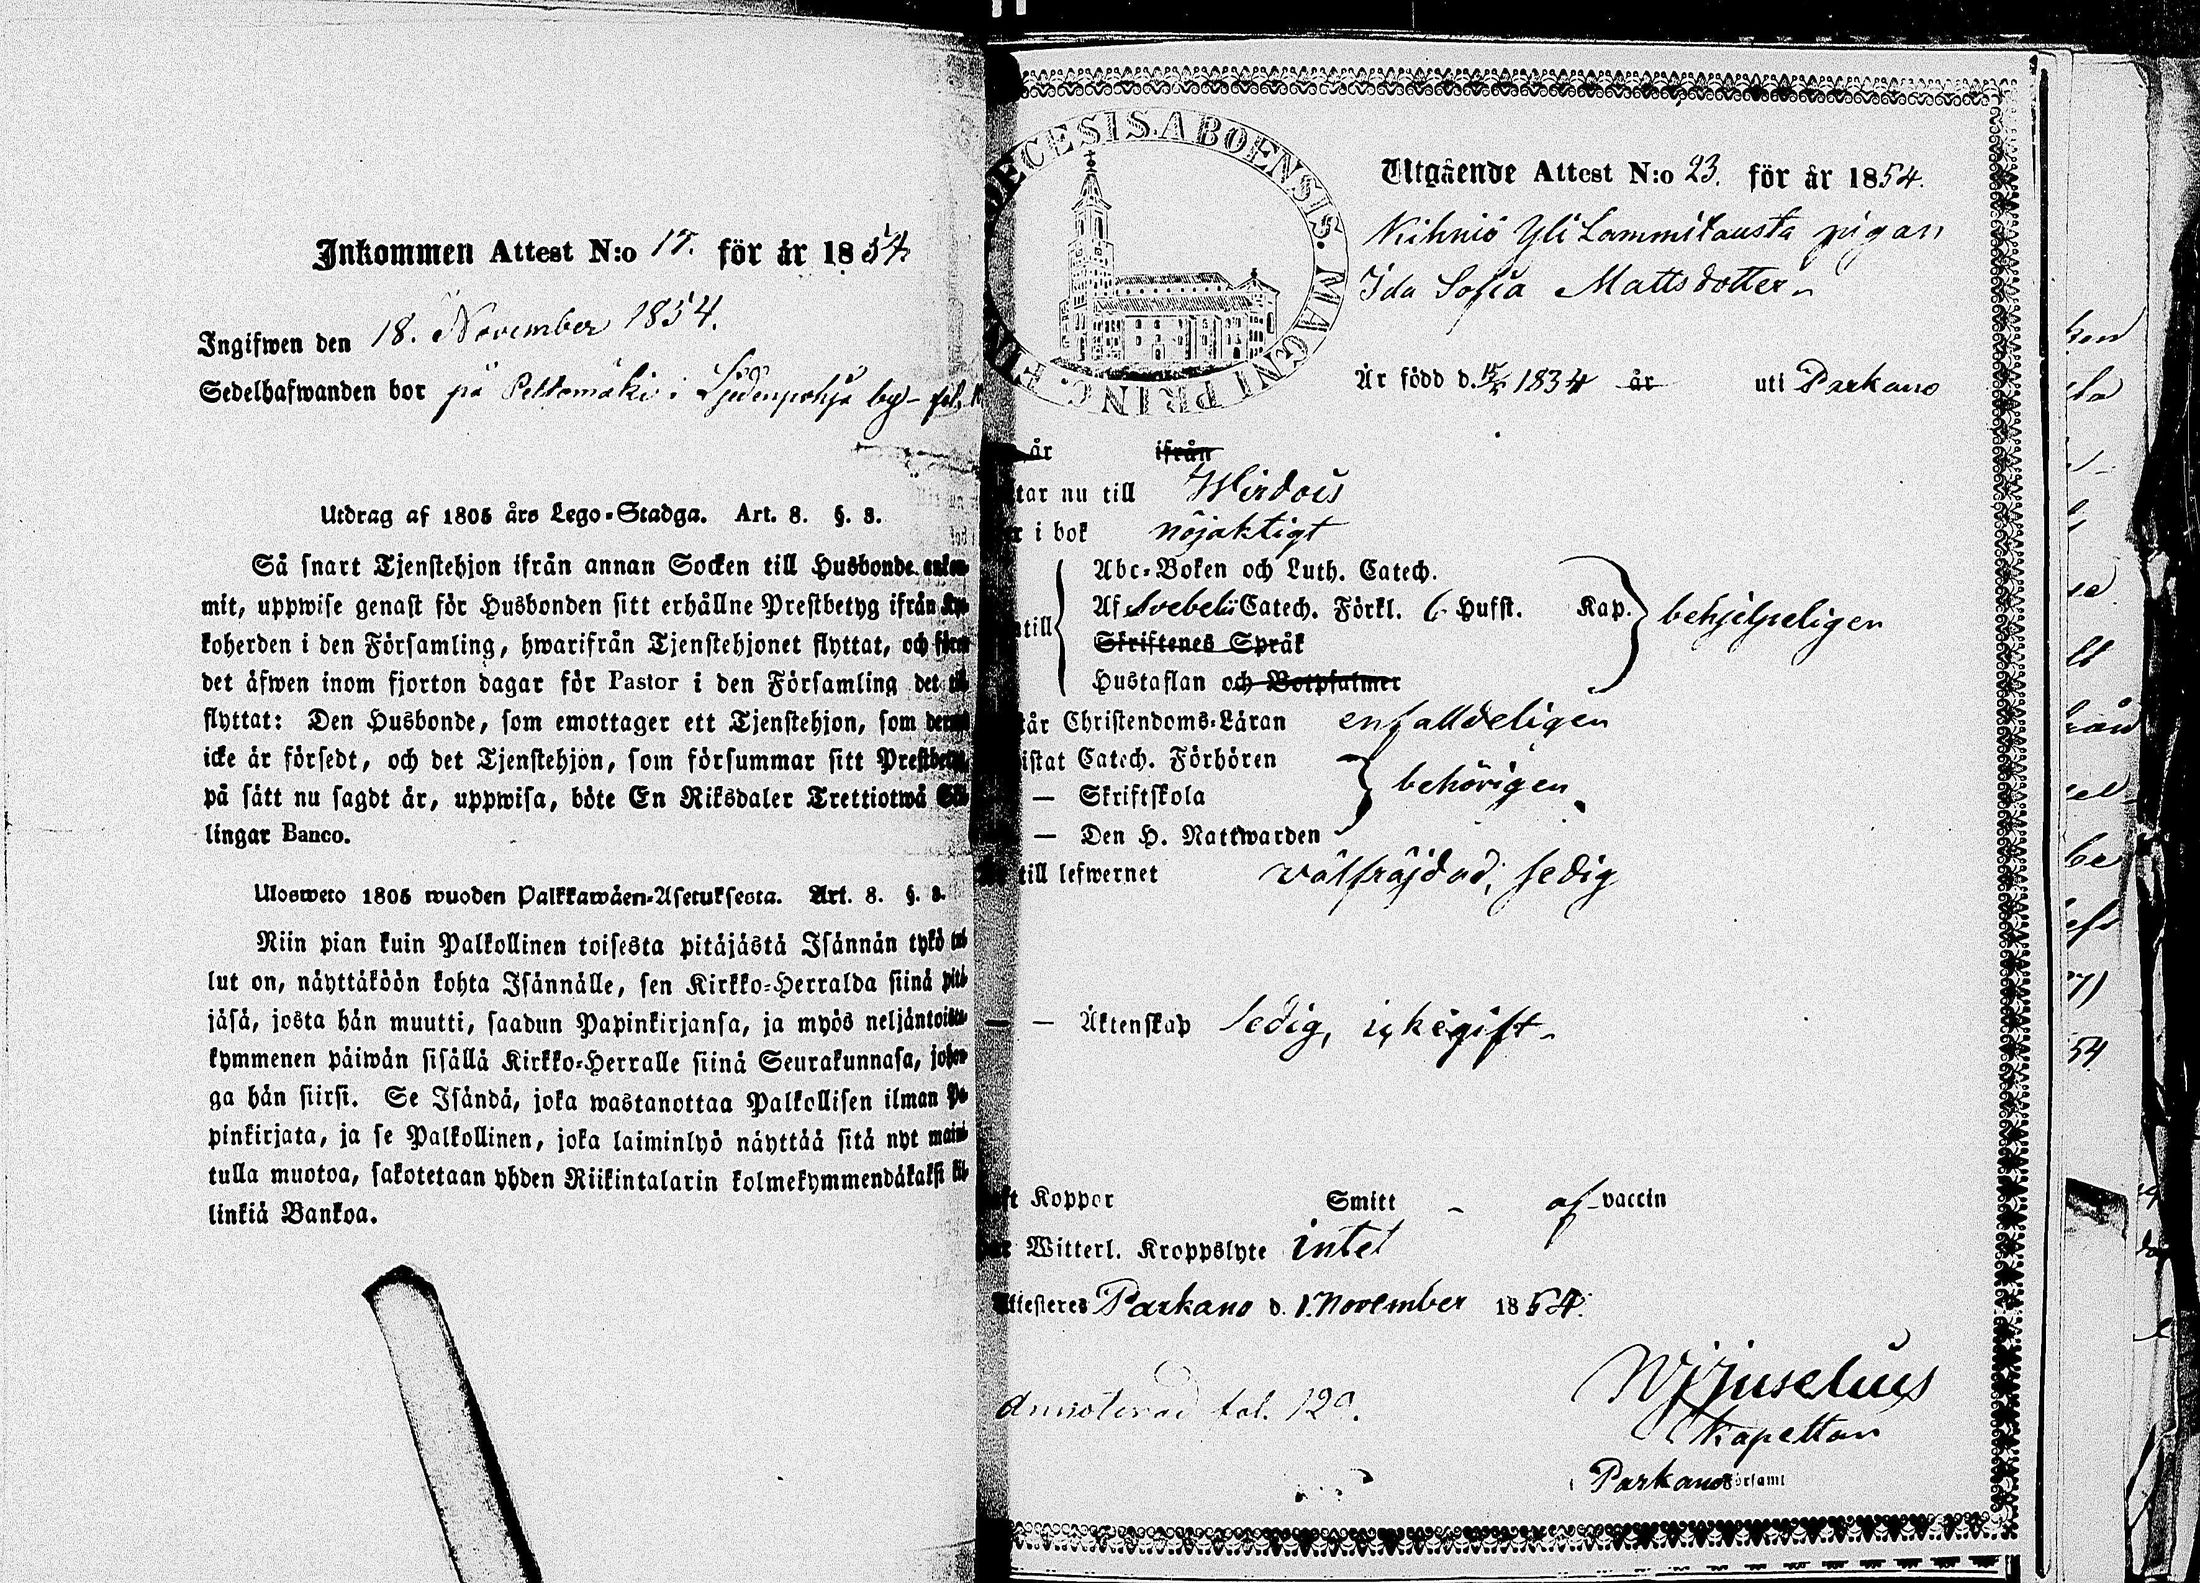 Inkommen Attest N:o 17. för år 1854.
Ingifwen den 18. November 1854.
Sedelhafwanden bor på Peltomäki i Sjedenpohja by - fol.
Utdrag af 1805 års Lego-Stadga. Art. 8. §. 8.
Så snart Tjenstehjon ifrån annan Socken till Husbonde ankom-
mit, uppwise genast för Husbonden sitt erhållne Prestbetyg ifrån Kyr-
koherden i den Församling, hwarifrån Tjenstehjonet flyttat, och förete
det äfwen inom fjorton dagar för Pastor i den Församling det till-
flyttat: Den Husbonde, som emottager ett Tjenstehjon, som dermed
icke är försedt, och det Tjenstehjon, som försummar sitt Prestbetyg,
på sätt nu sagdt är, uppwisa, böte En Riksdaler Trettiotwå Skil-
lingar Banco.
Ulosweto 1805 wuoden Palkkawäen-Asetuksesta. Art. 8. §. 8.
Niin pian kuin Palkollinen toisesta pitäjästä Isännän tykö tul-
lut on, näyttäköön kohta Isännälle, sen Kirkko-Herralda siinä pitä-
jäsä, josta hän muutti, saadun Papinkirjansa, ja myös neljäntoista-
kymmenen päiwän sisällä Kirkko-Herralle siinä Seurakunnasa, johon-
ga hän siirsi. Se Isändä, joka wastanottaa Palkollisen ilman Pa-
pinkirjata, ja se Palkollinen, joka laiminlyö näyttää sitä nyt maini-
tulla muotoa, sakotetaan yhden Riikintalarin kolmekymmendäkaksi kil-
linkiä Bankoa.
DIŒCESIS. ABOENSIS. MAGNI PRINC. FIN
Utgående Attest N:o 23. för år 1854.
Kihniö Yli Lammitausta pigan
Ida Sofia Mattsdotter
Är född d. 1834 år uti Parkano
år ifrån
tar nu till Wirdois
i bok nöjaktigt
Abc-Boken och Luth. Catech.
till Af Svebelii Catech. Förkl. 6 Hufst. Kap. behjelpeligen
Skriftenes Språk
Hustaflan och Botpsalmer
står Christendoms-Läran enfalldeligen
istat Catech. Förhören
— Skriftskola behörigen
— Den H. Nattwarden
till lefwernet välfräjdad, ledig
— — Äktenskap ledig, icke gift
Koppor Smitt - af vaccin
Witterl. Kroppslyte intet
Attesteres Parkano d. 1. November 1854.
Wjuselius
Kapellan
Annoterad fol. 120.
Parkano Församl